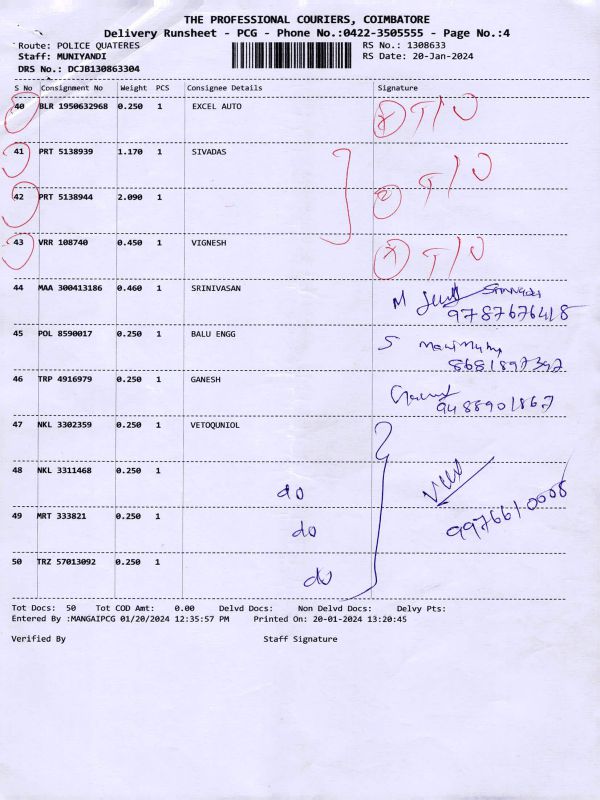 THE PROFESSIONAL COURIERS, COIMBATORE
Delivery Runsheet - PCG - Phone No.:0422-3505555 - Page No.:4
Route: POLICE QUATERES RS No.: 1308633
Staff: MUNIYANDI RS Date: 20-Jan-2024
DRS No.: DCJB130863304
S No Consignment No Weight PCS Consignee Details Signature
40 BLR 1950632968 0.250 1 EXCEL AUTO
41 PRT 5138939 1.170 1 SIVADAS
42 PRT 5138944 2.090 1
43 VRR 108740 0.450 1 VIGNESH
44 MAA 300413186 0.460 1 SRINIVASAN
9787676418
45 POL 8590017 0.250 1 BALU ENGG
46 TRP 4916979 0.250 1 GANESH
9488901867
47 NKL 3302359 0.250 1 VETOQUNIOL
48 NKL 3311468 0.250 1 do
49 MRT 333821 0.250 1 do
50 TRZ 57013092 0.250 1 do
Tot Docs: 50 Tot COD Amt: 0.00 Delvd Docs: Non Delvd Docs: Delvy Pts:
Entered By :MANGAIPCG 01/20/2024 12:35:57 PM Printed On: 20-01-2024 13:20:45
Verified By Staff Signature